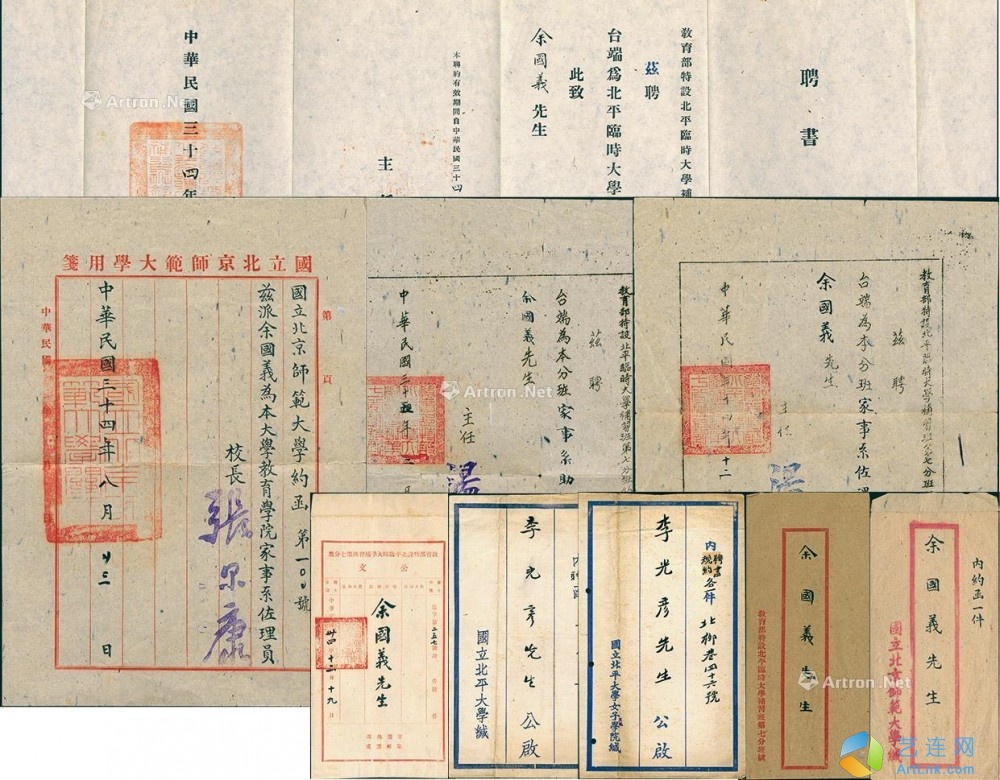 聘書
教育部特設北平臨時大學補
茲聘
台端為北平臨時大學
此致
余國義先生
本聘約有效期間自中華民國三十四
主任
中華民國三十四年
Artron.Net
Artron.Net
國立北京師範大學用箋
第 頁
國立北京師範大學約函 第一〇〇號
茲派余國義為本大學教育學院家事系佐理員
校長
中華民國三十四年八月廿三日
中華民國
教育部特設北平臨時大學補習班第七分班
茲聘
台端為本分班家事系助
余國義先生
主任
中華民國三十五年三月
Artron.Net
教育部特設北平臨時大學補習班第七分班
茲聘
台端為本分班家事系佐理
余國義先生
主任
中華民國三十四年十二
Artron.Net
公文
余國義先生
廿四年十二月十九日
李光彥先生 公啟
國立北平大學緘
內聘書規約各一件
北柳巷四十六號
李光彥先生 公啟
國立北平大學女子學院緘
余國義先生
教育部特設北平臨時大學補習班第七分班緘
Artron.Net
內約函一件
余國義先生
國立北京師範大學緘
艺连网
Artlnk.com